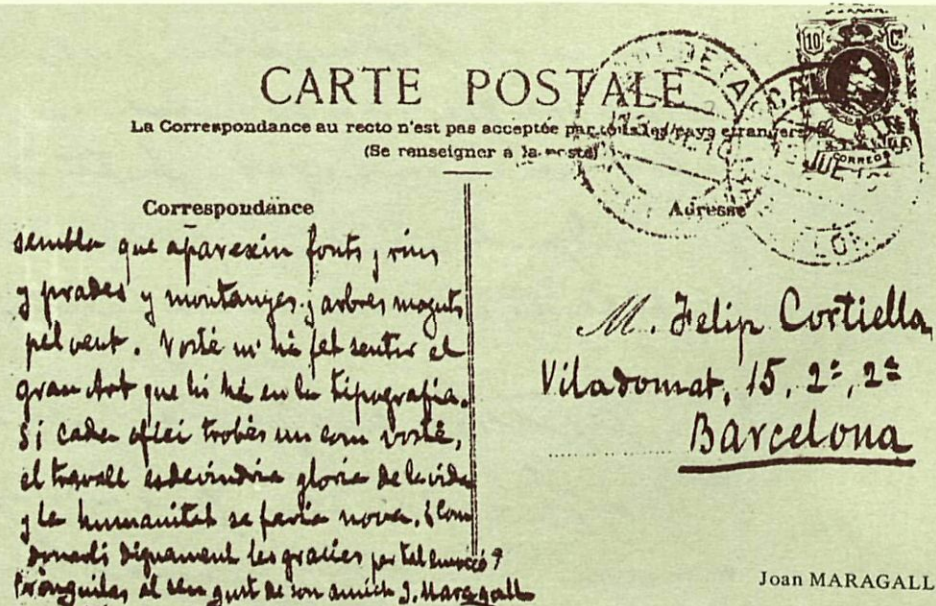 CARTE POSTALE
La Correspondance au recto n'est pas acceptée par tous les pays etrangers
(Se renseigner a la poste)
10 C
CORREOS
Correspondance
Adresse
sembla que aparexin fonts y rius
y prades y montanyes y arbres moguts
pel vent. Vosté m'ha fet sentir el
gran Art que hi ha en la tipografia.
Si cada ofici trobés un com vosté,
el travall esdevindria gloria de la vida
y la humanitat se faria nova. ¿Com
donarli dignament les gracies per tal emoció?
al seu gust de son amich J. Maragall
M. Felip Cortiella
Viladomat, 15, 2º, 2ª
Barcelona
Joan MARAGALL